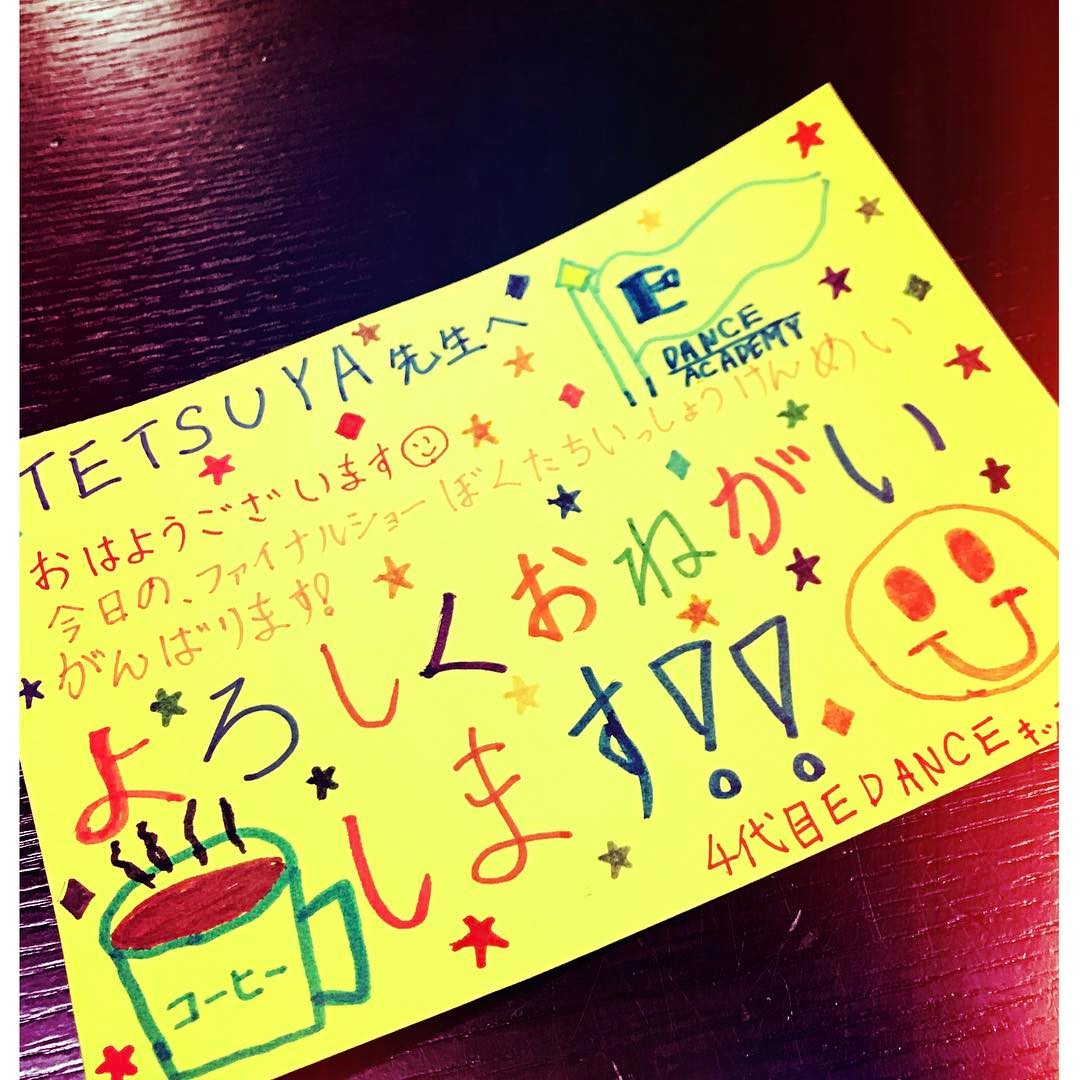 TETSUYA先生へ
E
DANCE
ACADEMY
おはようございます
今日の、ファイナルショーぼくたちいっしょうけんめい
がんばります!
よろしくおねがい
します!!
コーヒー
4代目EDANCEキッ